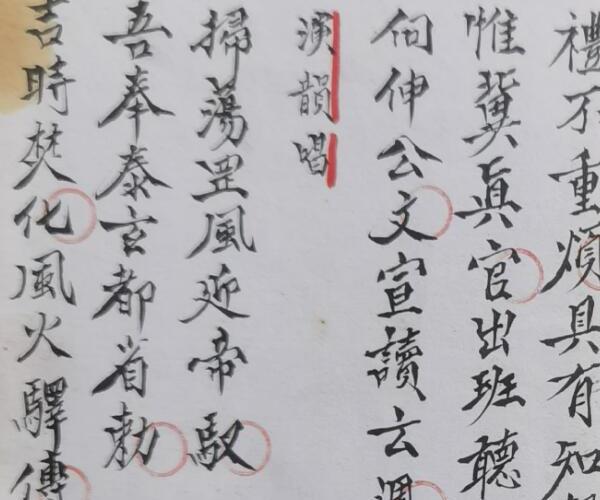 禮不重煩具有知
惟冀眞官出班聽
向伸公文宣讀云
演韻唱
掃蕩罡風迎帝馭
吾奉泰玄都省勅
吉時焚化風火驛傳